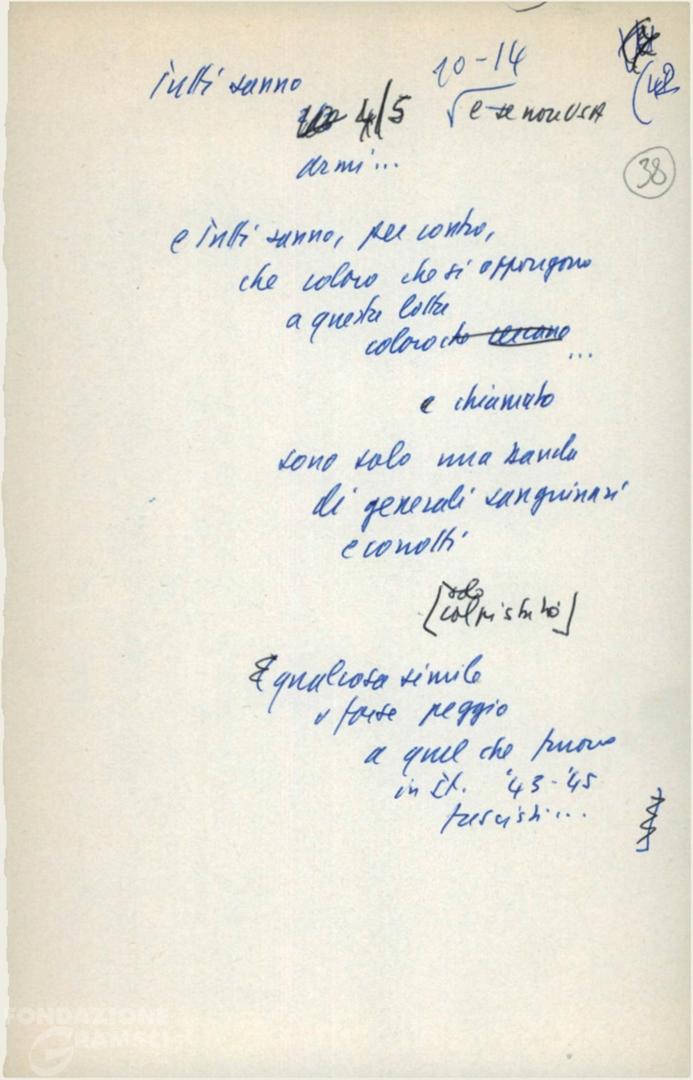 Tutti sanno
10-14
(42
4/5
√ e se non USA
armi...
38
e tutti sanno, per contro,
che coloro che si oppongono
a questa lotta
coloro che cercano
...
e chiamato
sono solo una banda
di generali sanguinari
e corrotti
[solo
colpisti tà]
È qualcosa simile
o forse peggio
a quel che furono
in It. '43-'45
fascisti...
FONDAZIONE
GRAMSCI